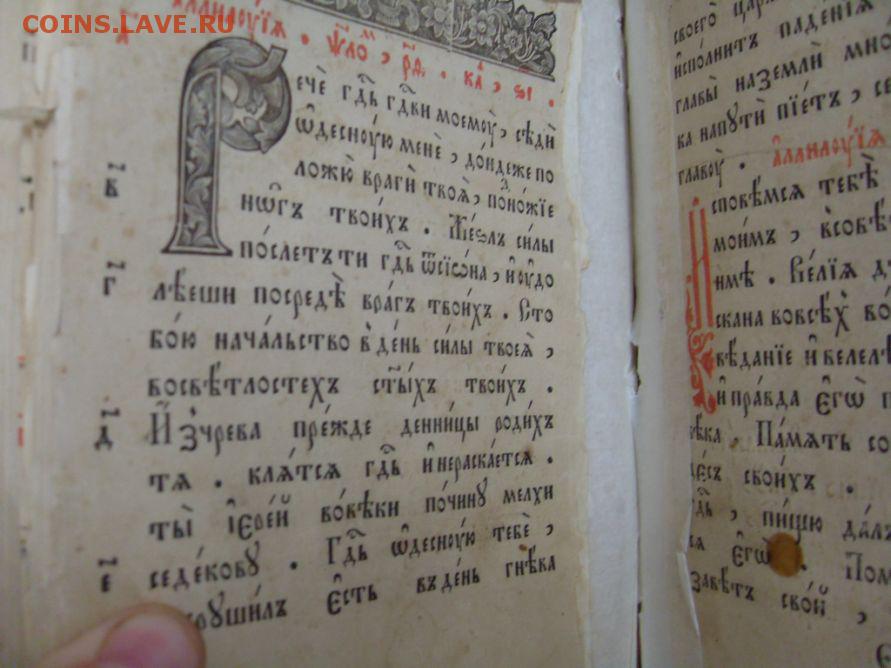 COINS.LAVE.RU
а҆ллилꙋ́їѧ . ѱл҃о́м , р҃д . к҃а , ѕ҃і .
Речѐ гдⷭ҇ь гдⷭ҇ви моемꙋ̀ , сѣдѝ
ѡ҆деснꙋ́ю менѐ , до́ндеже по
ложꙋ̀ врагѝ твоѧ̀ , подно́жїе
в҃
нѡ́гъ твои́хъ . Же́злъ си́лы
по́слетъ ти гдⷭ҇ь ѿ сїѡ́на , и҆ ѹ҆до
г҃
лѣеши посредѣ̀ вра́гъ твои́хъ . Сто
бо́ю нача́льство в де́нь си́лы твоеѧ̀ ,
во свѣ́тлостехъ ст҃ы́хъ твои́хъ .
д҃
И҆з̾ чре́ва пре́жде денни́цы роди́хъ
тѧ . клѧ́тсѧ гдⷭ҇ь и҆ не раска́етсѧ .
ты̀ і҆ере́й во́вѣки по чи́нꙋ мелхи
седе́ковꙋ . Гдⷭ҇ь ѡ҆деснꙋ́ю тебѐ ,
е҃
крꙋши́лъ є҆́сть въ де́нь гнѣ́ва
своего̀
и҆спо́лнитъ паде́нїѧ
главы̀ на землѝ мно
ка на пꙋтѝ пїе́тъ , се
главꙋ̀ . а҆ллилꙋ́їѧ
И҆сповѣ́мсѧ тебѣ̀
мои́мъ , в совѣ́
нмѣ . Ве́лїѧ д
ска́на во всѣ́хъ во́
вѣ́данїе и҆ велелѣ́
и҆ пра́вда є҆гѡ̀ п
вѣ́ка . Па́мѧть со
дѣ́съ свои́хъ .
гдⷭ҇ь , пи́щꙋ да́лъ
сѧ є҆гѡ̀ . Пом
завѣ́тъ сво́й ,